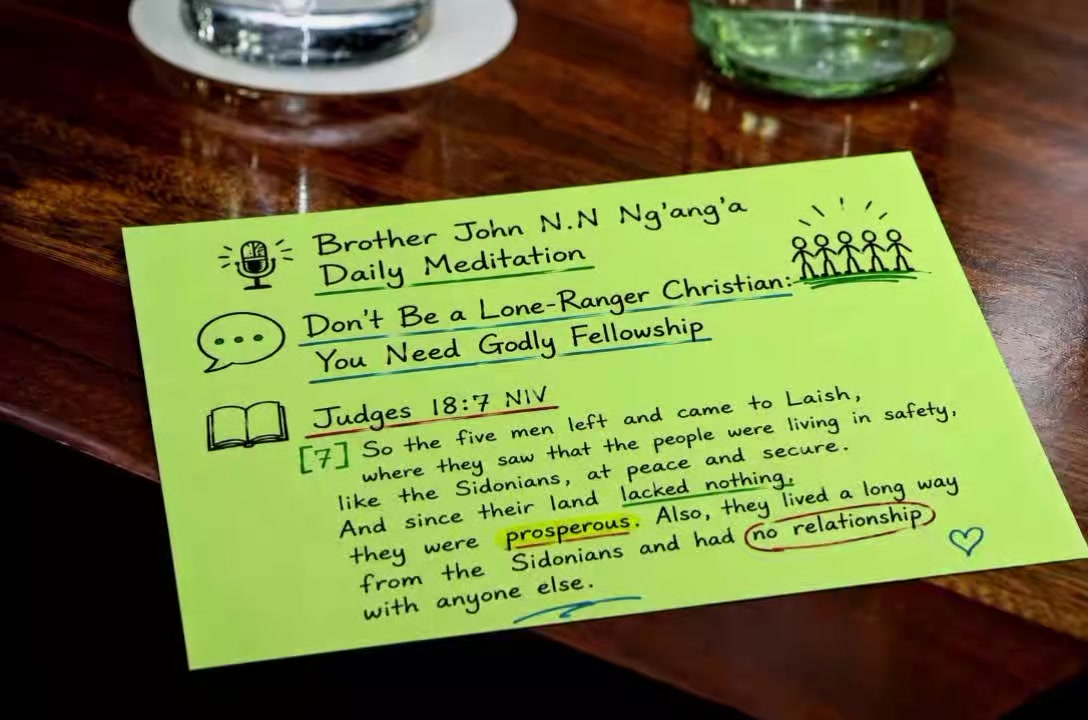 Brother John N.N Ng'ang'a
Daily Meditation
Don't Be a Lone-Ranger Christian:-
You Need Godly Fellowship
Judges 18:7 NIV
[7] So the five men left and came to Laish,
where they saw that the people were living in safety,
like the Sidonians, at peace and secure.
And since their land lacked nothing,
they were prosperous. Also, they lived a long way
from the Sidonians and had no relationship
with anyone else.